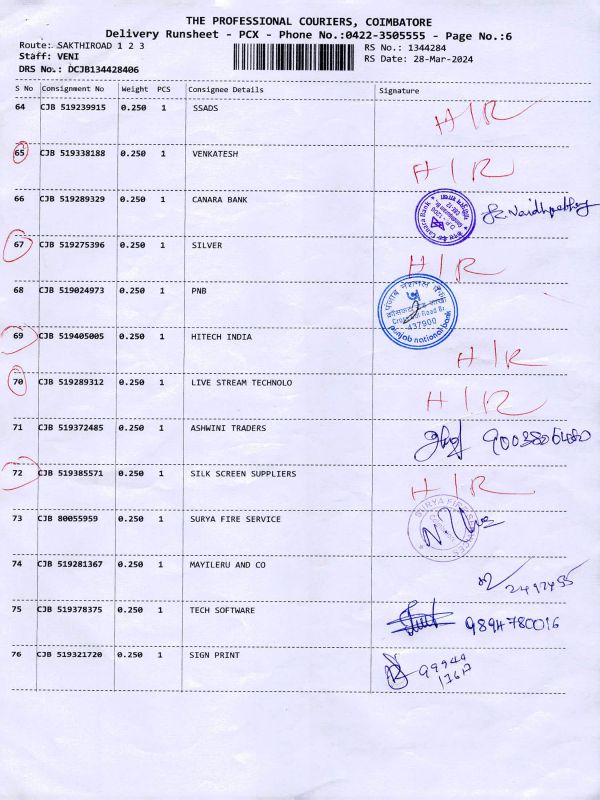 THE PROFESSIONAL COURIERS, COIMBATORE
Delivery Runsheet - PCX - Phone No.:0422-3505555 - Page No.:6
Route: SAKTHIROAD 1 2 3
RS No.: 1344284
Staff: VENI
RS Date: 28-Mar-2024
DRS No.: DCJB134428406
S No Consignment No Weight PCS Consignee Details Signature
64 CJB 519239915 0.250 1 SSADS H I R
65 CJB 519338188 0.250 1 VENKATESH H I R
66 CJB 519289329 0.250 1 CANARA BANK
67 CJB 519275396 0.250 1 SILVER H I R
68 CJB 519024973 0.250 1 PNB
पंजाब नैशनल बैंक
437900
punjab national bank
69 CJB 519405005 0.250 1 HITECH INDIA H I R
70 CJB 519289312 0.250 1 LIVE STREAM TECHNOLO H I R
71 CJB 519372485 0.250 1 ASHWINI TRADERS
72 CJB 519385571 0.250 1 SILK SCREEN SUPPLIERS H I R
73 CJB 80055959 0.250 1 SURYA FIRE SERVICE
SURYA FIRE SERVICES
74 CJB 519281367 0.250 1 MAYILERU AND CO
2497455
75 CJB 519378375 0.250 1 TECH SOFTWARE 9894780016
76 CJB 519321720 0.250 1 SIGN PRINT